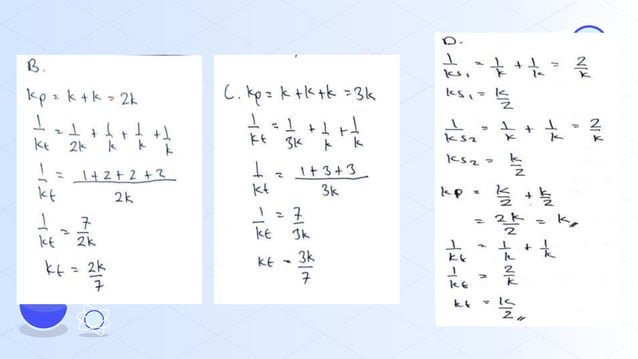 B.
kp = k + k = 2k
1/kt = 1/2k + 1/k + 1/k + 1/k
1/kt = 1+2+2+2/2k
1/kt = 7/2k
kt = 2k/7
C. kp = k + k + k = 3k
1/kt = 1/3k + 1/k + 1/k
1/kt = 1+3+3/3k
1/kt = 7/3k
kt = 3k/7
D.
1/ks1 = 1/k + 1/k = 2/k
ks1 = k/2
1/ks2 = 1/k + 1/k = 2/k
ks2 = k/2
kp = k/2 + k/2
= 2k/2 = k//
1/kt = 1/k + 1/k
1/kt = 2/k
kt = k/2//